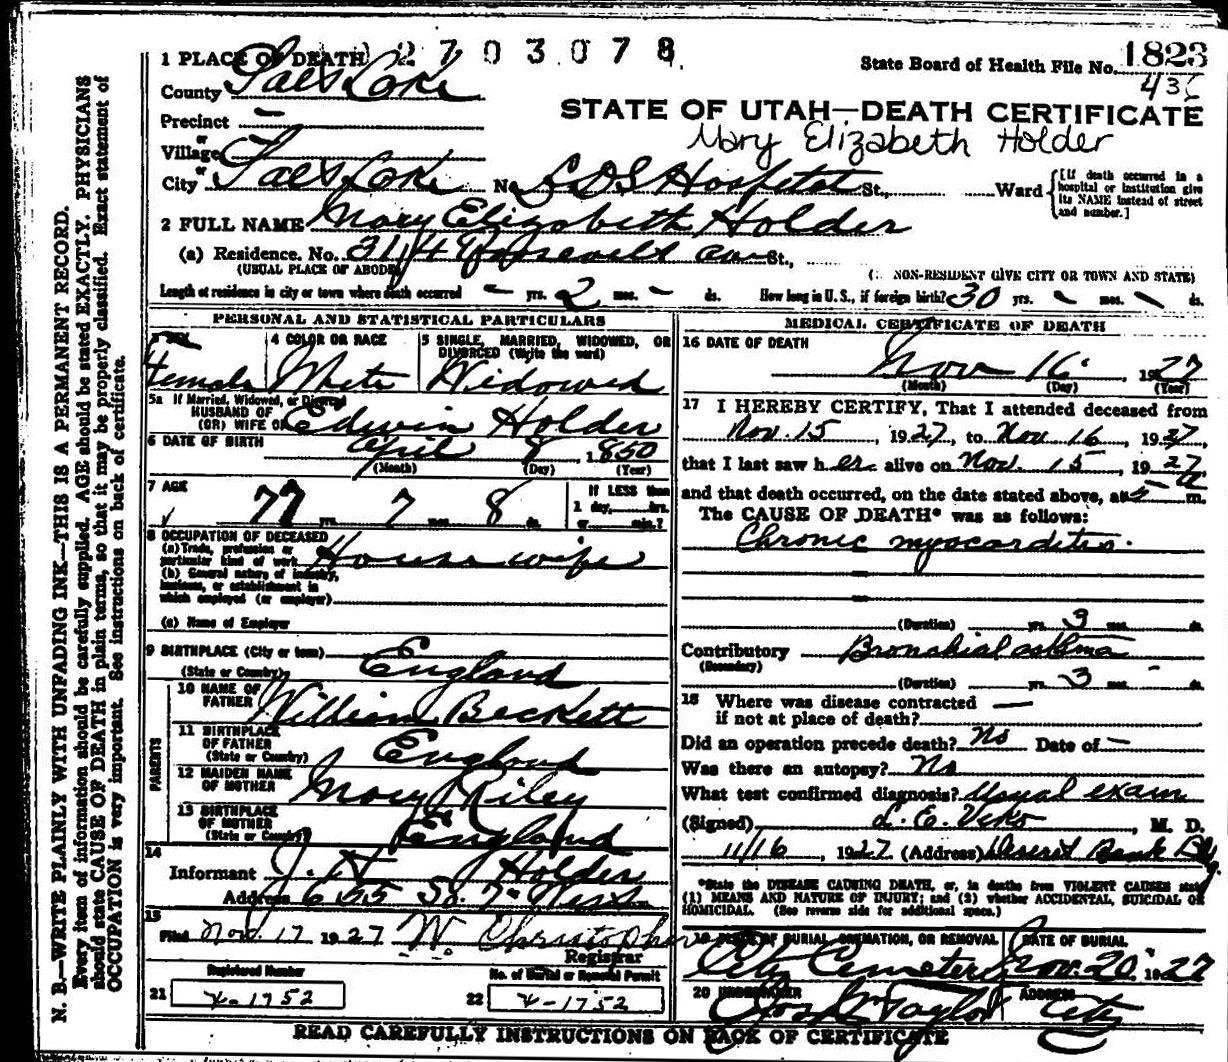 1 PLACE OF DEATH 2703078
State Board of Health File No. 1823
County Salt Lake
STATE OF UTAH—DEATH CERTIFICATE
Precinct —
Mary Elizabeth Holder
or
Village
or
City Salt Lake No. LDS Hospital St., Ward
[If death occurred in a
hospital or institution give
its NAME instead of street
and number.]
2 FULL NAME Mary Elizabeth Holder
(a) Residence. No. 3114 Roosevelt ave St.,
(USUAL PLACE OF ABODE)
( NON-RESIDENT GIVE CITY OR TOWN AND STATE)
Length of residence in city or town where death occurred — yrs. 2 mos. — ds. How long in U. S., if foreign birth? 30 yrs. — mos. — ds.
PERSONAL AND STATISTICAL PARTICULARS
3 SEX
Female
4 COLOR OR RACE
White
5 SINGLE, MARRIED, WIDOWED, OR
DIVORCED (Write the word)
Widowed
5a If Married, Widowed, or Divorced
HUSBAND OF
(OR) WIFE OF Edwin Holder
6 DATE OF BIRTH April 8 1850
(Month) (Day) (Year)
7 AGE
77 yrs. 7 mos. 8 ds.
If LESS than
1 day, hrs.
or min.?
8 OCCUPATION OF DECEASED
(a) Trade, profession or
particular kind of work Housewife
(b) General nature of industry,
business, or establishment in
which employed (or employer)
(c) Name of Employer
9 BIRTHPLACE (City or town)
(State or Country) England
PARENTS
10 NAME OF
FATHER William Beckett
11 BIRTHPLACE
OF FATHER
(State or Country) England
12 MAIDEN NAME
OF MOTHER Mary Riley
13 BIRTHPLACE
OF MOTHER
(State or Country) England
14
Informant J. H. Holder
Address So. 7 West
15
Filed Nov. 17 1927 W. Christopher
Registrar
Registered Number
21 x-1752
No. of Burial or Removal Permit
22 x-1752
MEDICAL CERTIFICATE OF DEATH
16 DATE OF DEATH
Nov 16 1927
(Month) (Day) (Year)
17 I HEREBY CERTIFY, That I attended deceased from
Nov. 15, 1927, to Nov 16, 1927,
that I last saw her alive on Nov. 15, 1927
and that death occurred, on the date stated above, at m.
The CAUSE OF DEATH* was as follows:
Chronic myocarditis.
(Duration) yrs. 3 ds.
Contributory Bronchial asthma
(Secondary)
(Duration) yrs. 3 mos. — ds.
18 Where was disease contracted —
if not at place of death?
Did an operation precede death? No Date of —
Was there an autopsy? No
What test confirmed diagnosis? Usual exam
(Signed) L. E. Viko, M. D.
11/16, 1927 (Address) Deseret Bank Bldg.
*State the DISEASE CAUSING DEATH, or, in deaths from VIOLENT CAUSES state
(1) MEANS AND NATURE OF INJURY; and (2) whether ACCIDENTAL, SUICIDAL OR
HOMICIDAL. (See reverse side for additional space.)
19 PLACE OF BURIAL, CREMATION, OR REMOVAL
City Cemetery
DATE OF BURIAL
Nov. 20 1927
20 UNDERTAKER
Jos. Wm Taylor
ADDRESS
City
READ CAREFULLY INSTRUCTIONS ON BACK OF CERTIFICATE
N. B.—WRITE PLAINLY WITH UNFADING INK—THIS IS A PERMANENT RECORD.
Every item of information should be carefully supplied. AGE should be stated EXACTLY. PHYSICIANS
should state CAUSE OF DEATH in plain terms, so that it may be properly classified. Exact statement of
OCCUPATION is very important. See instructions on back of certificate.